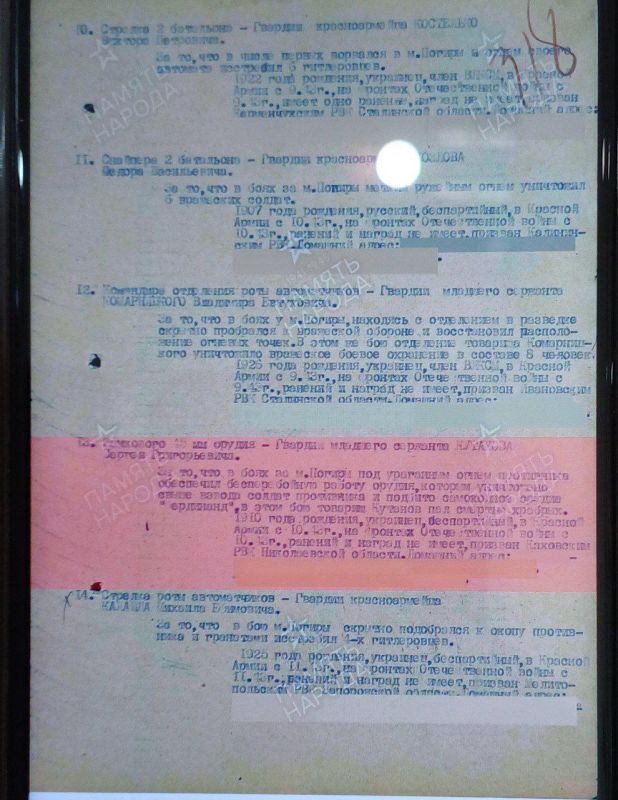 318
10. Стрелка 2 батальона - Гвардии красноармейца КОСТЕНЬКО
Виктора Петровича.
За то, что в числе первых ворвался в м.Погиры и огнем своего
автомата истребил 6 гитлеровцев.
1922 года рождения,украинец,член ВЛКСМ,в Красной
Армии с 9.43г.,на фронтах Отечественной войны с
9.43г.,имеет одно ранение,наград не имеет,призван
РВК Сталинской области.Домашний адрес:
11. Снайпера 2 батальона - Гвардии красноармейца
Федора Васильевича.
За то,что в боях за м.Погиры метким ружейным огнем уничтожил
6 вражеских солдат.
1907 года рождения,русский,беспартийный,в Красной
Армии с 10.43г.,на фронтах Отечественной войны с
10.43г.,ранений и наград не имеет.призван Калинин-
ским РВК.Домашний адрес:
12. Командира отделения роты автоматчиков - Гвардии младшего сержанта
КОМАРНИЦКОГО Владимира
За то, что в бою у м.Погиры,находясь с отделением в разведке
скрытно пробрался к вражеской обороне и восстановил располо-
жение огневых точек.В этом же бою отделение товарища Комарниц-
кого уничтожило вражеское боевое охранение в составе 8 человек.
1925 года рождения,украинец,член ВЛКСМ,в Красной
Армии с 9.43г.,на фронтах Отечественной войны с
9.43г.,ранений и наград не имеет,призван Ивановским
РВК Сталинской области.Домашний адрес:
13. Замкового 45 мм орудия - Гвардии младшего сержанта КУТАНОВА
Сергея Григорьевича.
За то,что в боях за м.Погиры под ураганным огнем противника
обеспечил бесперебойную работу орудия,которым уничтожено
свыше взвода солдат противника и подбито самоходное орудие
"Фердинанд",в этом бою товарищ Кутанов пал смертью храбрых.
1910 года рождения,украинец,беспартийный,в Красной
Армии с 10.43г.,на фронтах Отечественной войны с
10.43г.,ранений и наград не имеет,призван Каховским
РВК Николаевской области.Домашний адрес:
14. Стрелка роты автоматчиков - Гвардии красноармейца
Михаила Ефимовича.
За то,что в бою м.Погиры скрытно подобрался к окопу против-
ника и гранатами истребил 4-х гитлеровцев.
1925 года рождения,украинец,беспартийный,в Красной
Армии с 11.43г.,на фронтах Отечественной войны с
11.43г.,ранений и наград не имеет,призван Мелито-
польским РВК Запорожской области.Домашний адрес:
ПАМЯТЬ НАРОДА